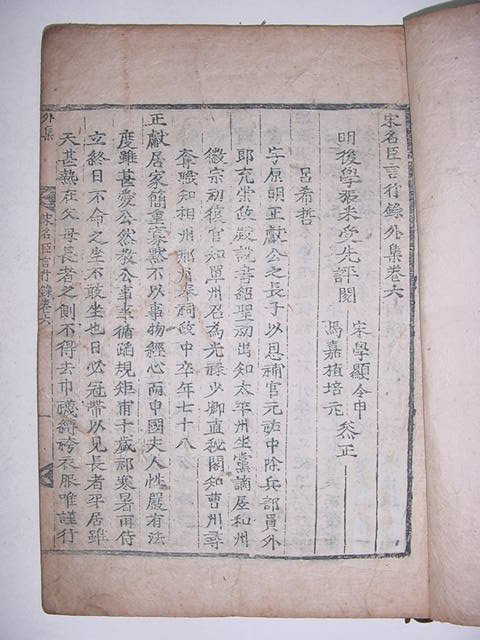 宋名臣言行錄外集卷六
明後學張采受先評閱
宋學顯令申
馬嘉植培元
參正
呂希哲
字原明正獻公之長子以恩補官元祐中除兵部員外
郎充崇政殿說書紹聖初出知太平州坐黨謫居和州
徽宗初復官知單州召為光祿少卿直秘閣知曹州尋
奪職知相州邢州奉祠政中卒年七十八
正獻居家簡重寡默不以事物經心而申國夫人性嚴有法
度雖甚愛公然教公事事循蹈規矩甫十歲祁寒暑雨侍
立終日不命之坐不敢坐也日必冠帶以見長者平居雖
天甚熱在父母長者之側不得去巾襪縛袴衣服唯謹行
外集
宋名臣言行錄卷六